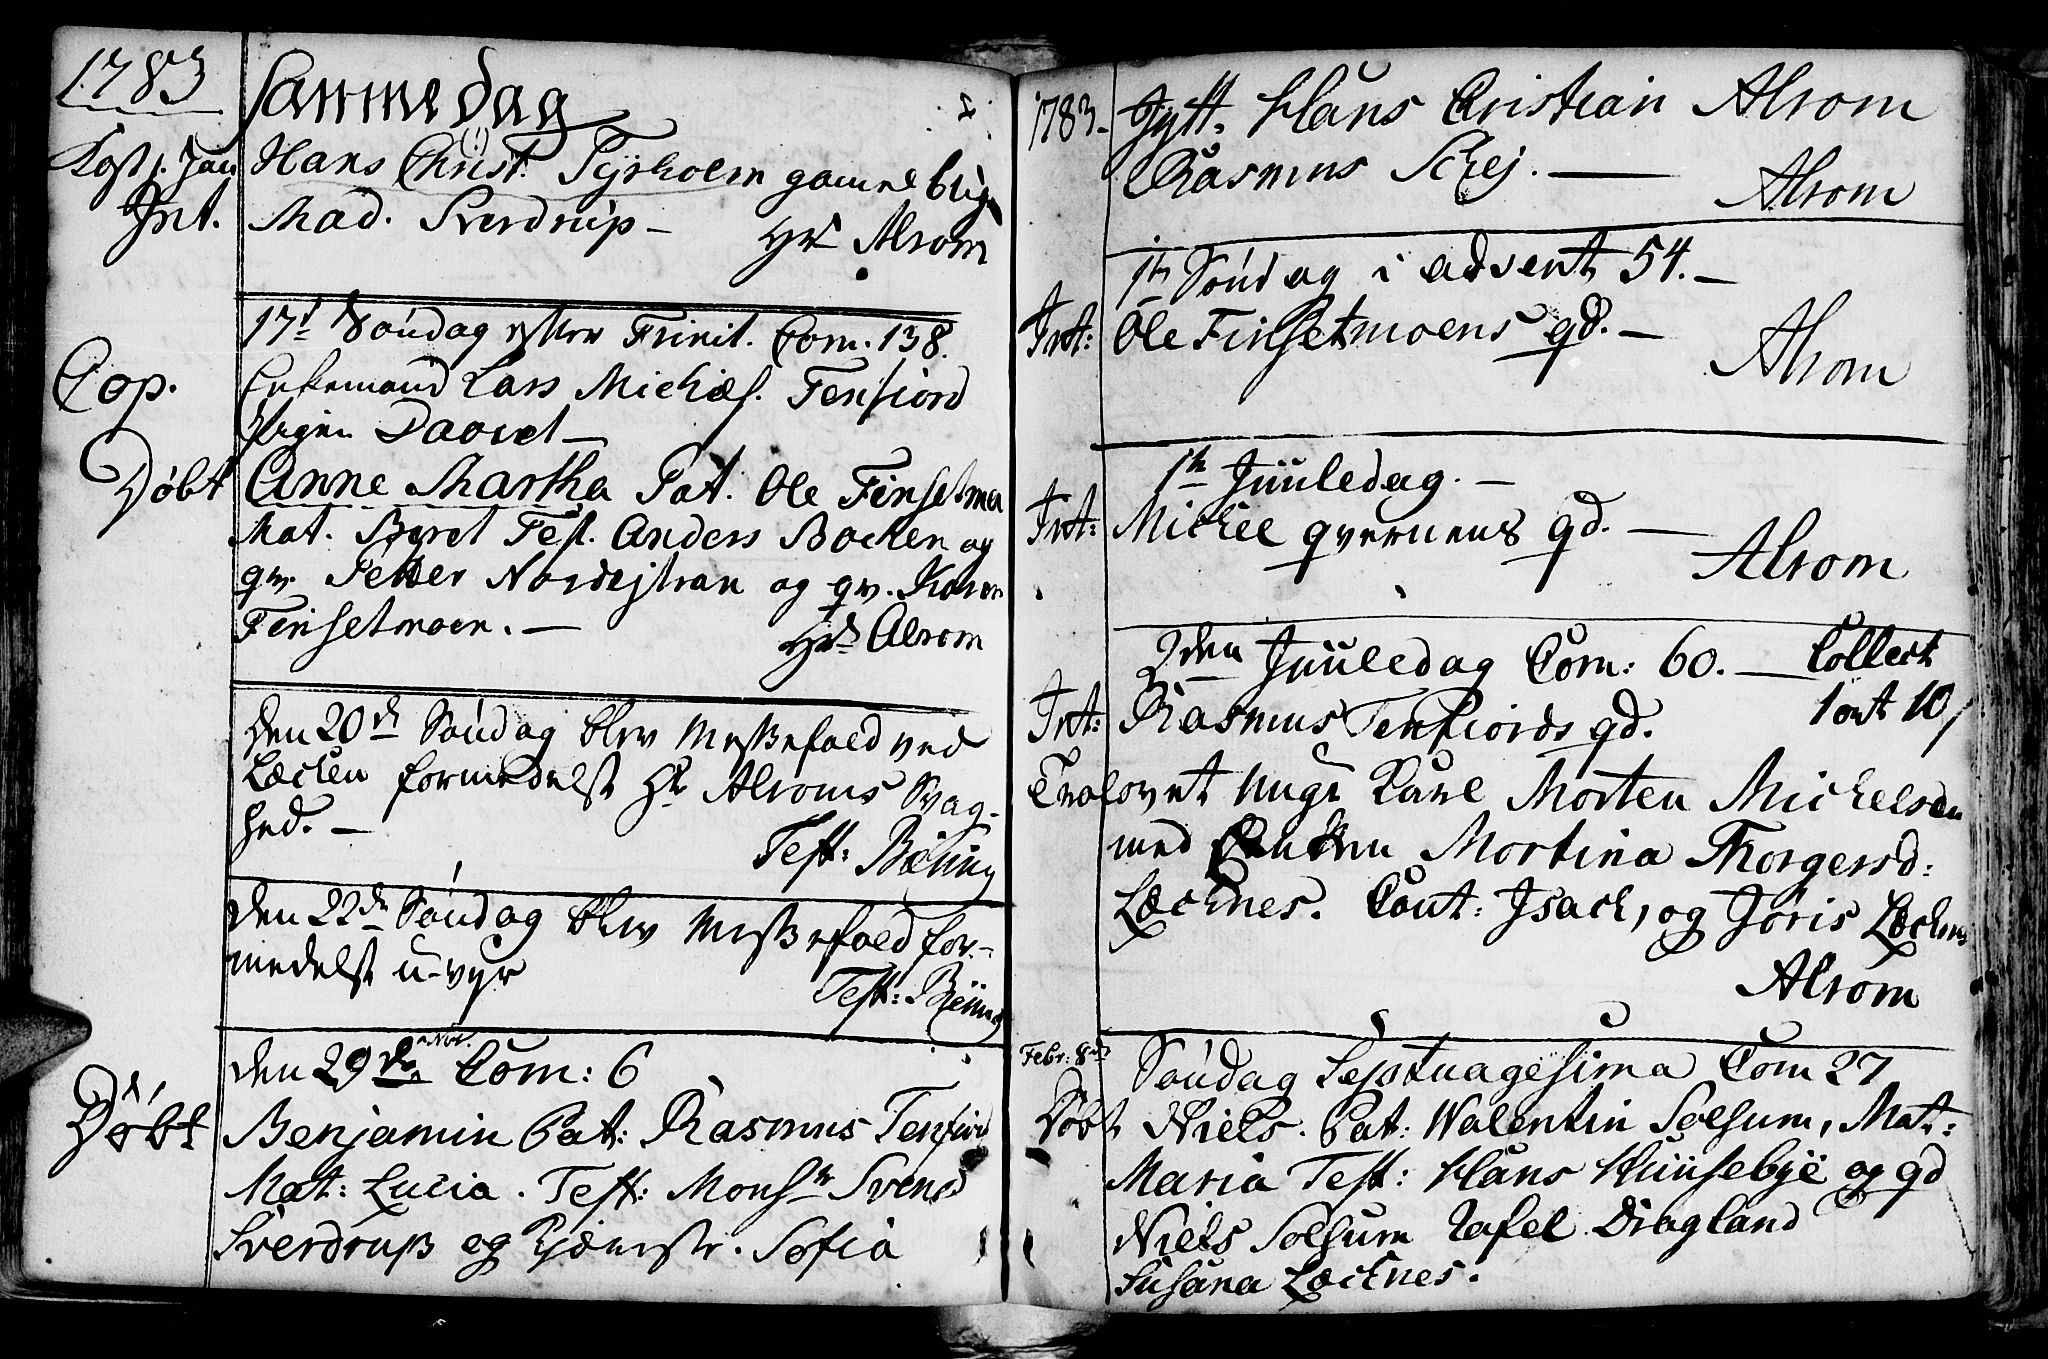 1783
Samme dag
Jan
Int.
Hans Christ. Tyrholm gamel
Mad. Sverdrup —
Hr Alrom
17d Søndag efter Trinit. Com. 138.
Cop.
Enkemand Lars Michæls. Tenfiord
Pigen
Døbt
Anne Martha Pat. Ole Finsetmo
Mat. Beret Test. Anders Bochen og
qv. Petter Nordejstran og qv. Karen
Finsetmoen. —
Hr Alrom
Den 20de Søndag blev Messefald ved
Læchen formedelst Hr Alroms Svag-
hed. —
Test: Bøhing
Den 22de Søndag blev Messefald for-
medelst u-vyr
Test: Bøhing
Den 29de Nov. Com: 6
Døbt
Benjamin Pat: Rasmus Tenfiord
Mat: Lucia. Test: Monsr Svend
Sverdrup og Tjænistr. Sofia
1783.
Jytt. Hans Cristian Alrom
Rasmus Schej. —
Alrom
1te Søndag i advent 54. —
Int:
Ole Finsetmoens qd. —
Alrom
1te Juuledag. —
Int:
Michel qvernens qd. —
Alrom
2den Juuledag Com: 60. — Collect
1 ort 10
Int:
Rasmus Tenfiords qd.
Trolovet unge Karl Morten Michelsen
med Enken Mortina Thorgersd:
Læchnes. Caut: Isach, og Joris Læchnes
Alrom
Febr: 8de
Søndag Septuagesima Com 27
Døbt
Niels. Pat: Valentin Solsum, Mat:
Maria Test: Hans Huusebye og qd
Niels Solsum Tafel Dragland
Susana Læchnes.